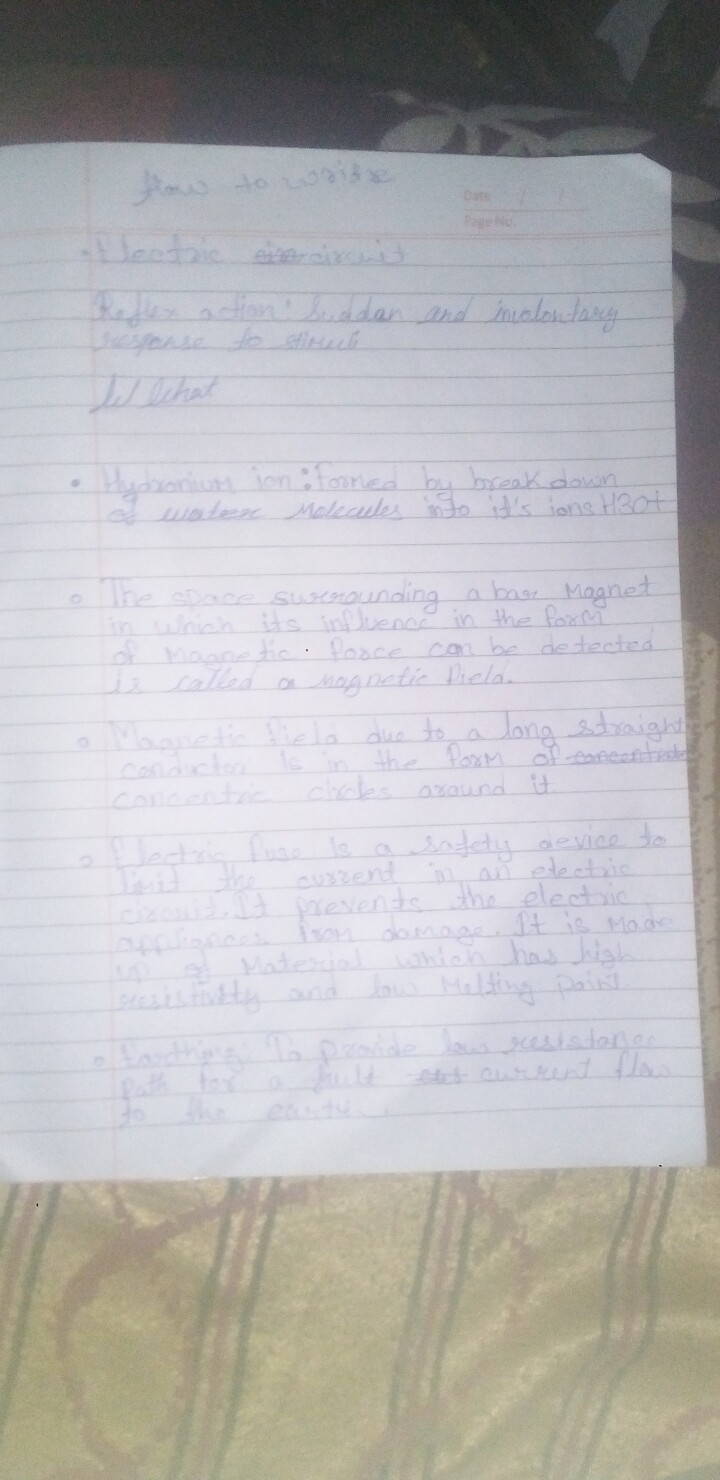 How to write
Date / /
Page No.
Electric circuit
Reflex action: Suddan and involontary
response to stimuli
What
Hydronium ion: formed by break down
of water Molecules into it's ions H3O+
The space surrounding a bar Magnet
in which its influence in the form
of Magnetic force can be detected
is called a magnetic field.
Magnetic field due to a long straight
conductor is in the form of
concentric circles around it
Electric fuse is a safety device to
limit the current in an electric
circuit. It prevents the electric
appliances from damage. It is Made
up of Material which has high
resistivity and low Melting point
Earthing: To provide low resistance
path for a fult current flow
to the earth.